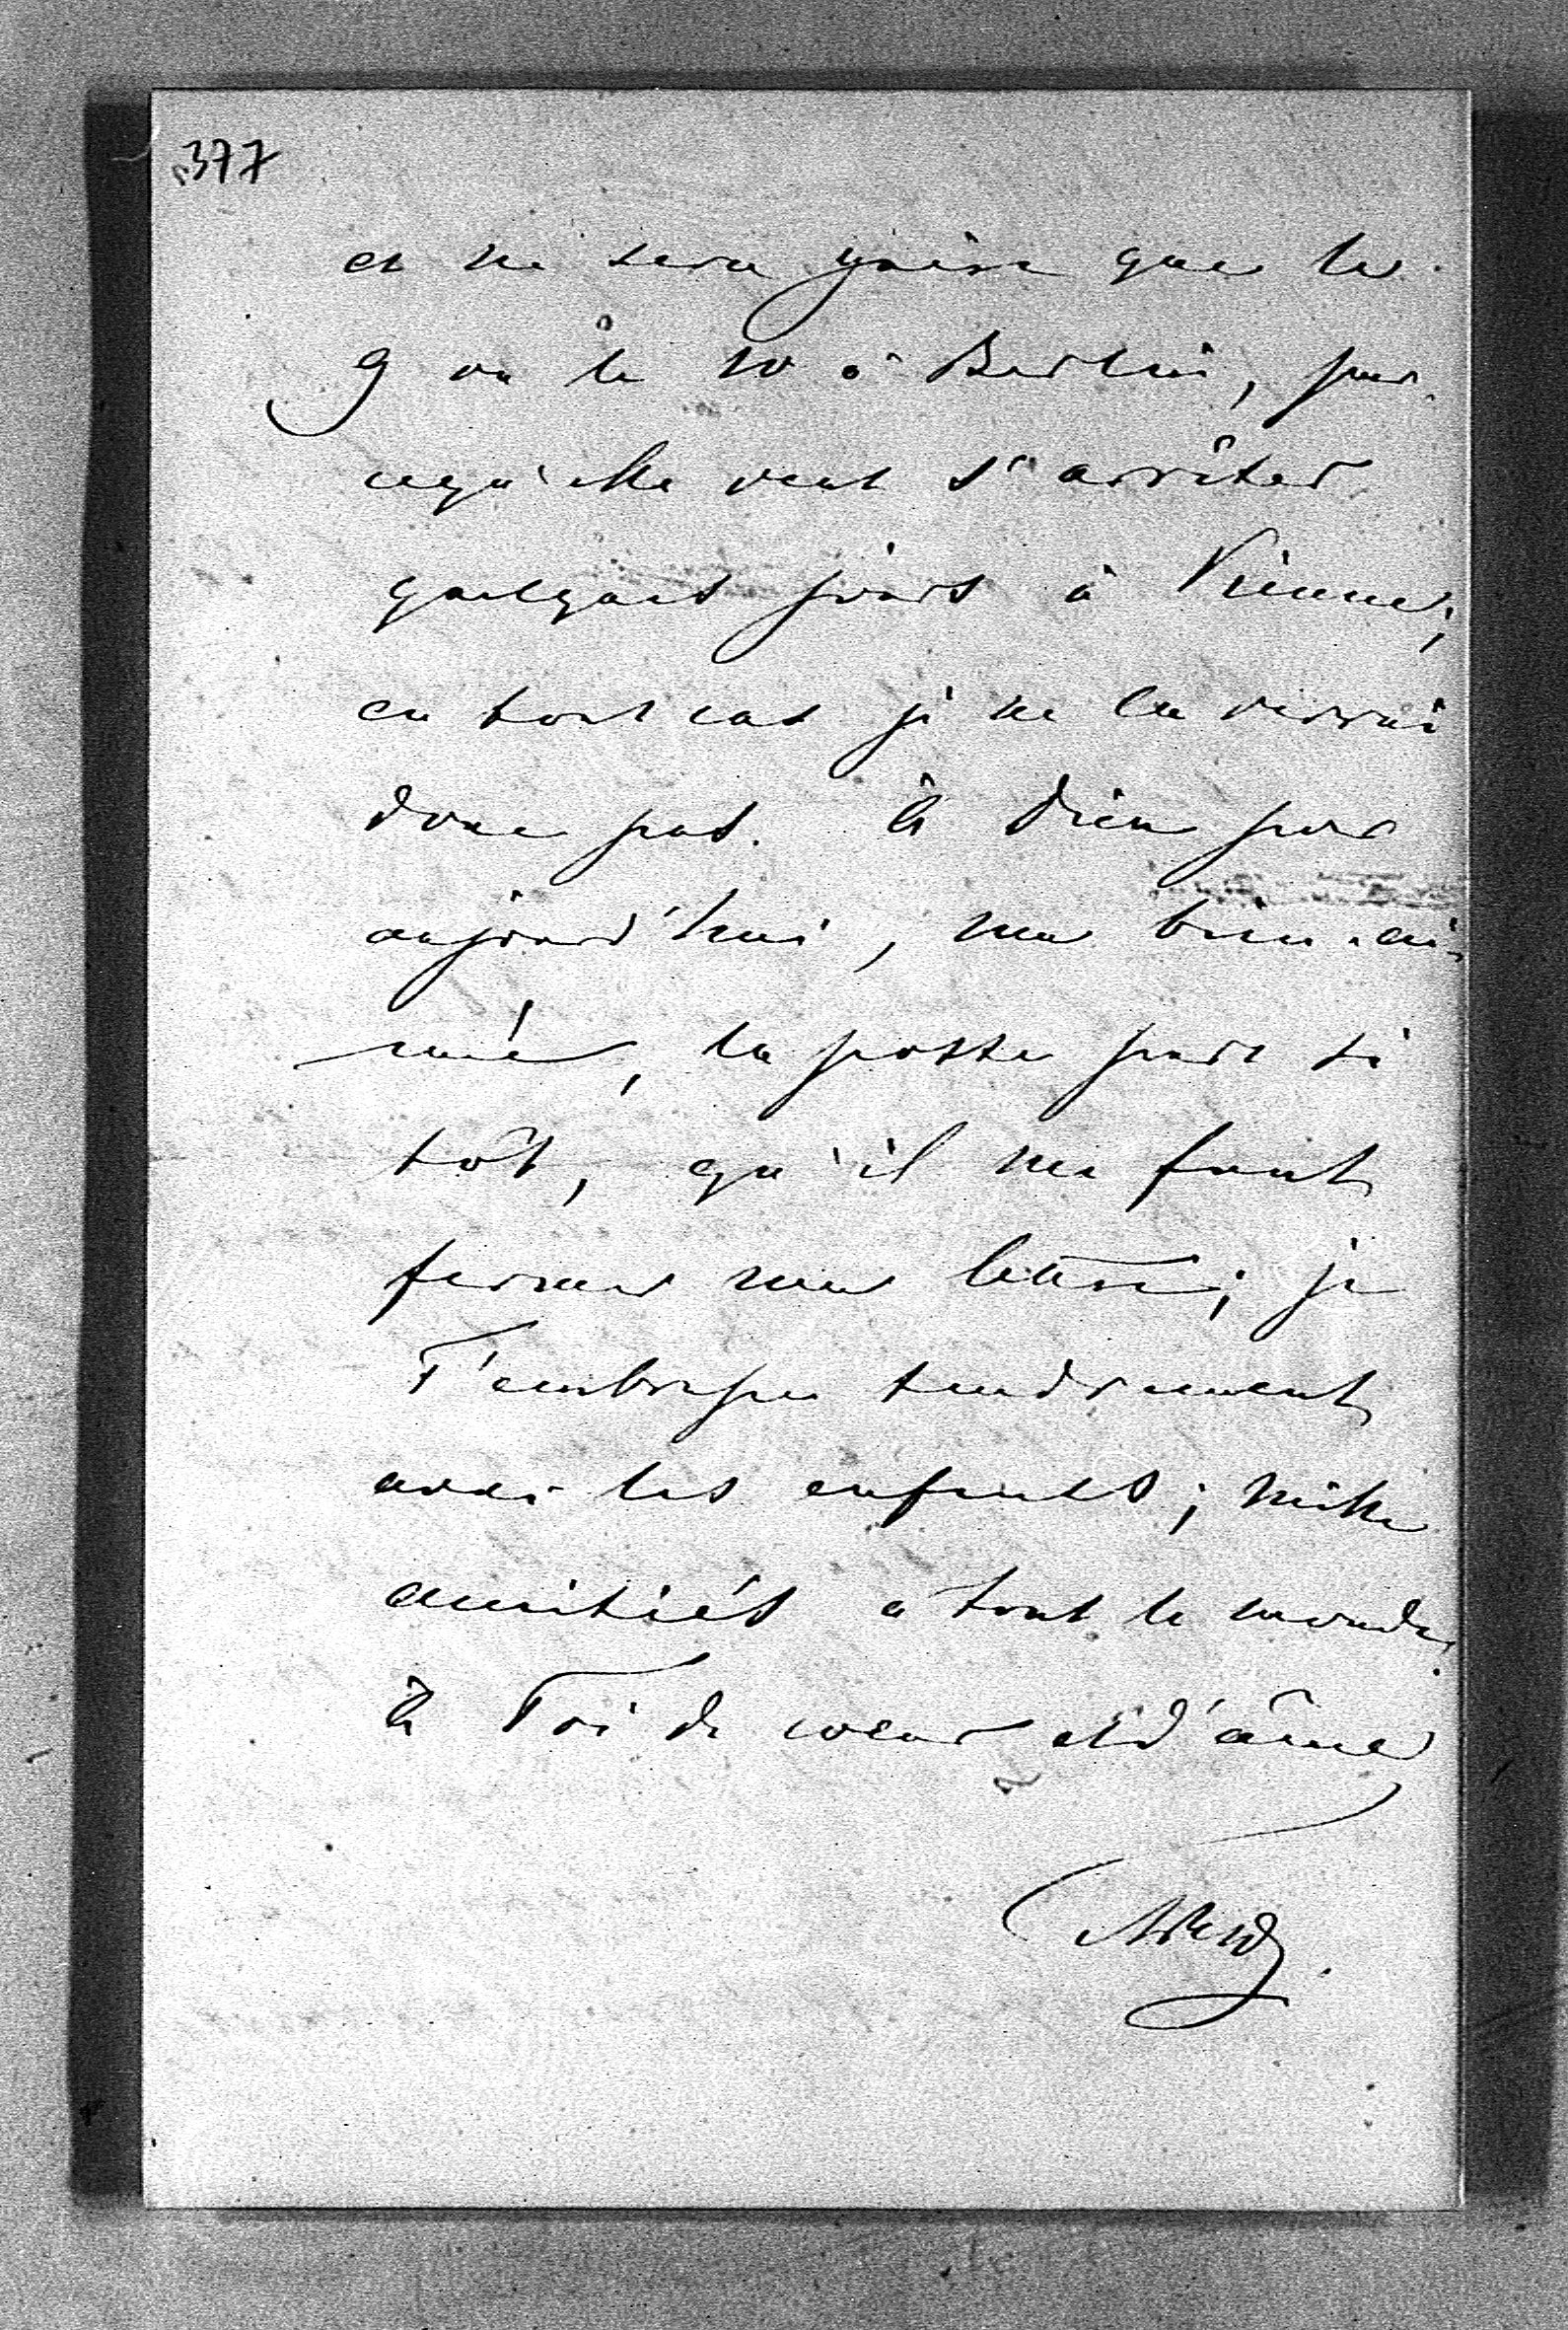 377
et ne sera guère que le
9 ou le 10 à Berlin, par
cequ'elle veut s'arrêter
quelques jours à Vienne;
en tout cas je ne la verrai
donc pas. à Dieu pour
aujourd'hui, ma bien-ai-
mée, la poste part si
tôt, qu'il me faut
fermer ma lettre; je
T'embrasse tendrement
avec les enfants; mille
amitiés à tout le monde.
à Toi de coeur et d'âme